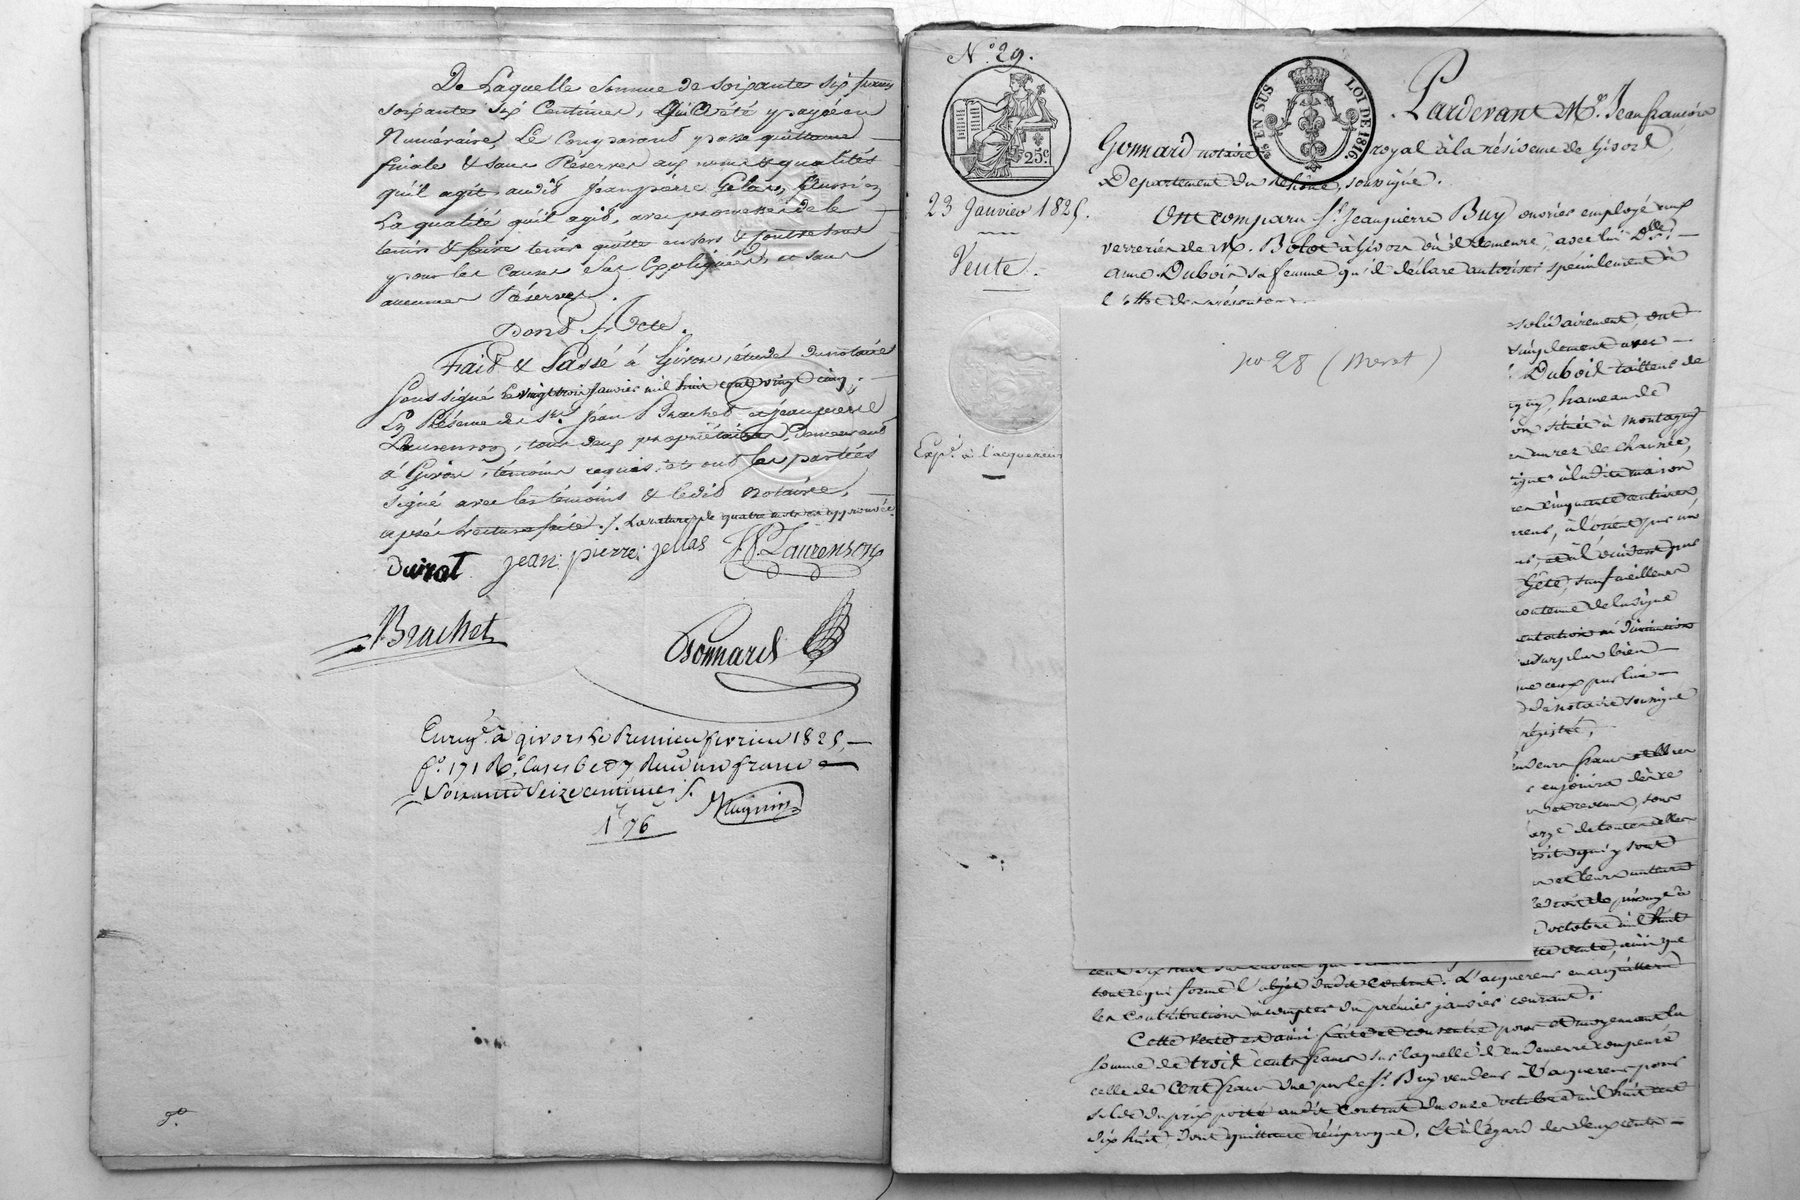 De Laquelle somme de soixante six francs
soixante six Centimes, Qui a été payée en
Numéraire, Le Comparant passe quittance
finale & sans Réserves aux noms & qualités
qu'il agit audit Jean pierre Gelas, aussi en
La qualité qu'il agit, avec promesse de le
tenir & faire tenir quitte envers & contre tous
pour les causes Sus Expliquées, et sans
aucunes Réserves.
Dont Acte.
Fait & Passé à Givors, étude du notaire
soussigné Le vingt trois janvier mil huit cent vingt cinq,
En Présence de Srs. Jean Brachet et jean pierre
Laurenson, tous deux propriétaires, demeurant
à Givors, témoins requis, et ont les parties
signé avec les témoins & ledit notaire,
après lecture faite ./. La rature de quatre mots est approuvée
Duirat jean pierre jellas J.P. Laurenson
Brachet
Gonnard
Enregé. à givors Le Premier fevrier 1825,
fo. 171 Ro. Cases 6 et 7 Reçu un franc
Soixante Seize centimes /.
1f 76c
Magnin
No. 29.
25c
EN SUS
LOI DE 1816.
23 Janvier 1825.
Vente.
Expon. à l'acquereur
Pardevant Me. Jean françois
Gonnard notaire royal à la résidence de Givors,
Departement du Rhône, soussigné.
Ont comparu Sr. Jean pierre Buy ouvrier employé aux
verreries de M. Bolot à Givors où il demeure, avec lui Delle.
anne Dubois sa femme qu'il déclare autoriser spécialement à
l'effet des présentes
no 28 (Meret)
solidairement, ont
simplement avec
Dubois tailleur de
hameau de
située à montagny
rez de chaussée,
à la dite maison
cinquante centiares
à l'orient par un
l'occident par
Gété, sauf meilleurs
contenue de la vigne
surplus bien
que ceux par lui
notaire soussigné
registré,
en jouir
revenus, sous
de toutes celles
qui y sont
et leurs auteurs
octobre mil huit
vente, ainsi que
cent dix huit
tout ce qui forme l'objet dudit Contrat. L'acquereur en acquittera
les Contributions à compter du premier janvier courant.
Cette vente est ainsi faite et consentie pour et moyennant la
somme de trois cents francs sur laquelle il en demeure compensé
celle de cent francs due par le Sr. Buy vendeur à l'acquereur pour
solde du prix porté audit Contrat du onze octobre mil huit cent
dix huit, dont quittance réciproque, Et à l'égard des deux cents